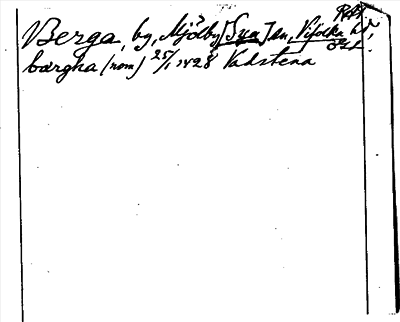 Berga, by, Mjölby [Sya] sn, Vifolka hd,
bærgha (nom) 25/1 1428 Vadstena